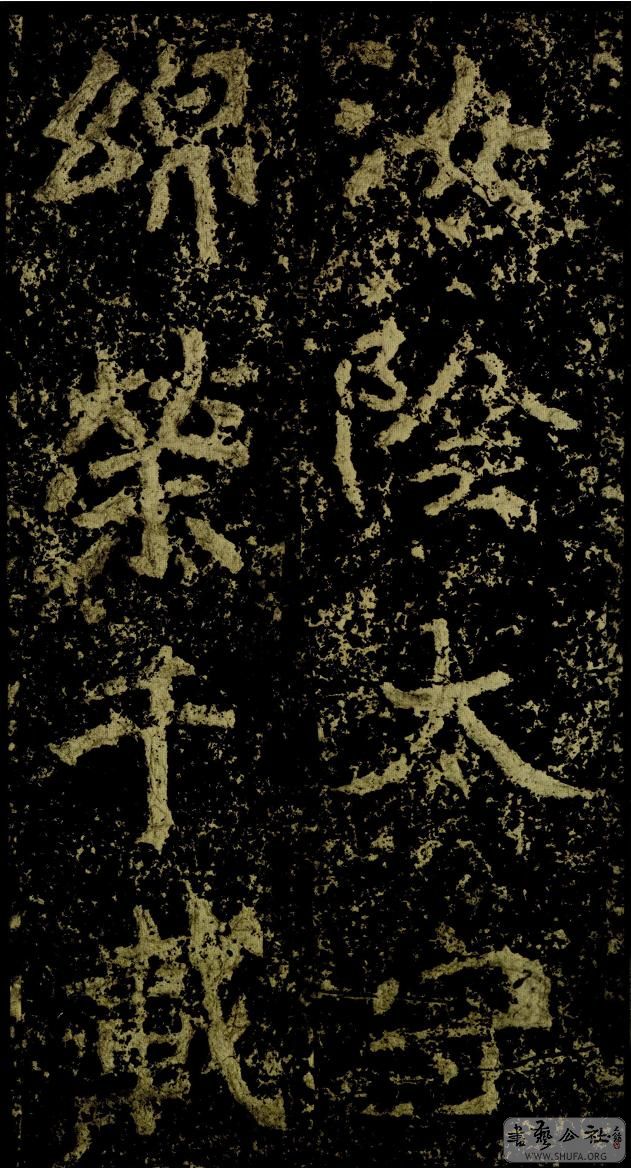 汝陰太守
綿榮千載
書藝公社
WWW.SHUFA.ORG